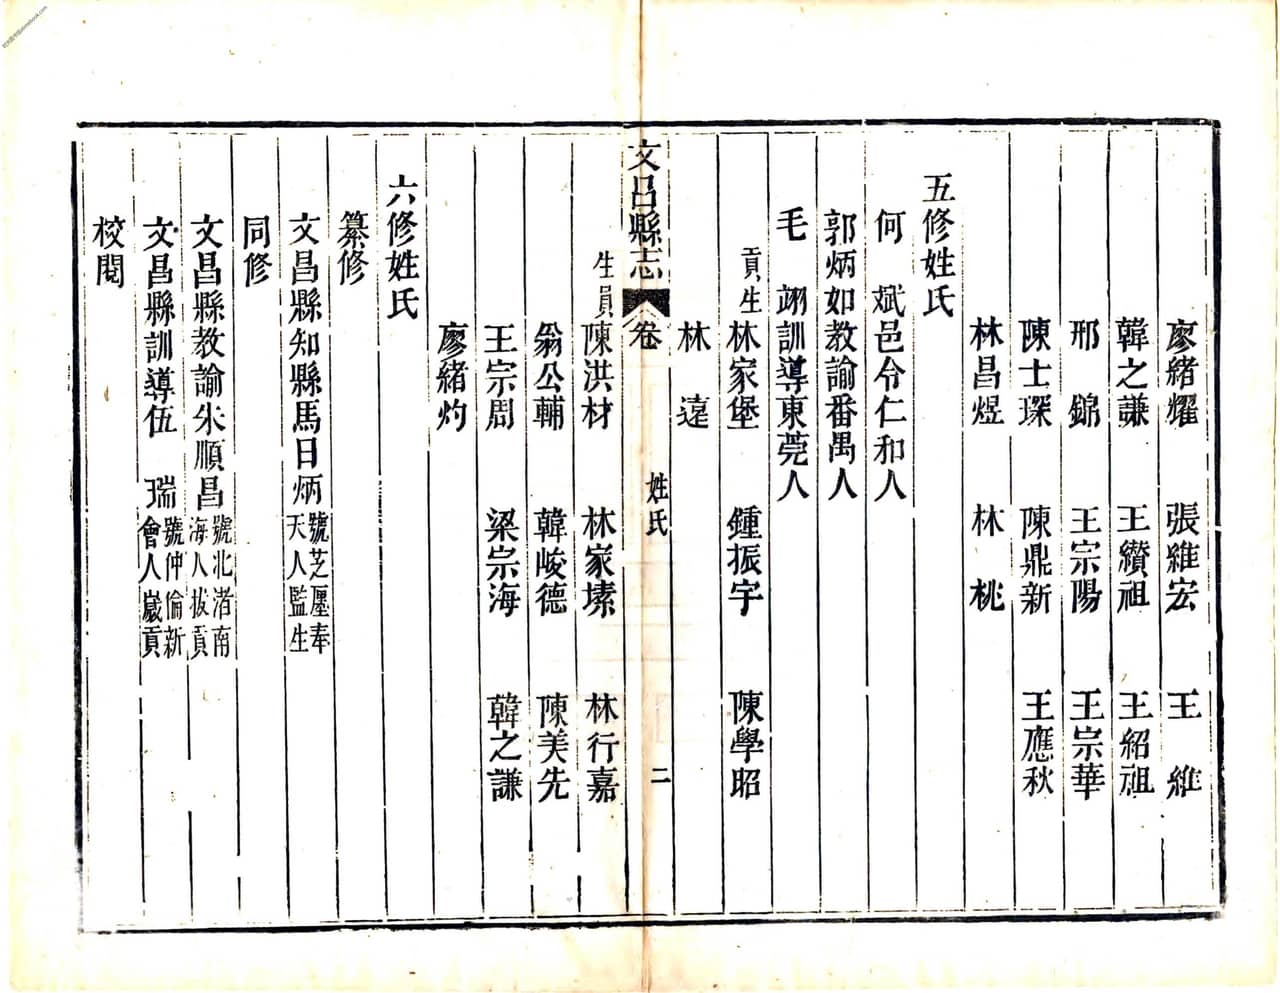 廖緒耀　張維宏　王　維
韓之謙　王纘祖　王紹祖
邢　錦　王宗陽　王宗華
陳士琛　陳鼎新　王應秋
林昌煜　林　桃
五修姓氏
何　斌邑令仁和人
郭炳如教諭番禺人
毛　翊訓導東莞人
貢生林家堡　鍾振宇　陳學昭
林　遠
文昌縣志　卷　姓氏　二
生員陳洪材　林家㙇　林行嘉
翁公輔　韓峻德　陳美先
王宗周　梁宗海　韓之謙
廖緒灼
六修姓氏
纂修
文昌縣知縣馬日炳號芝厓奉天人監生
同修
文昌縣教諭朱順昌號北渚南海人拔貢
文昌縣訓導伍　瑞號仲倫新會人歲貢
校閱